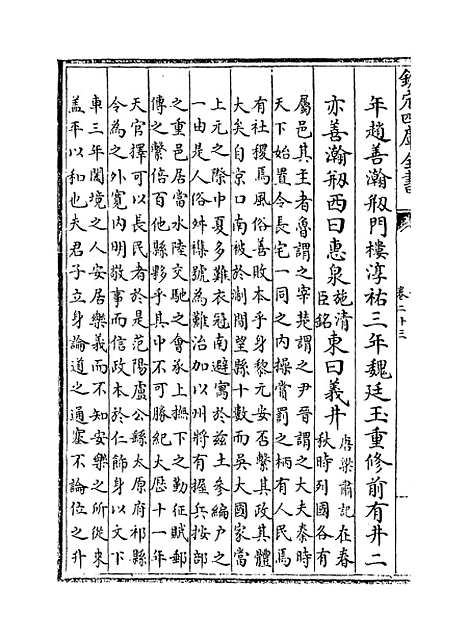 欽定四庫全書
卷二十三
年趙善瀚剏門樓淳祐三年魏廷玉重修前有井二
亦善瀚剏西曰惠泉施清臣銘東曰義井唐梁肅記在春秋時列國各有
屬邑其主者魯謂之宰楚謂之尹晉謂之大夫秦時
天下始置令長宅一同之内操賞罰之柄有人民焉
有社稷焉風俗善敗本乎身黎元安否繫其政其體
大矣自京口南被於淛間望縣十數而吳大國家當
上元之際中夏多難衣冠南避寓於兹土參編户之
一由是人俗舛襍號為難治加以州將有握兵按部
之重邑居當水陸交馳之會承上撫下之勤征賦郵
傳之繁倍百他縣夥乎其中不可勝紀大厯十一年
天官擇可以長民者於是范陽盧公縣太原府祁縣
令為之外寛内明敬事而信政本於仁飾身以文下
車三年闔境之人安居樂義而不知安樂之所從來
盖平以和也夫君子立身論道之通塞不論位之升